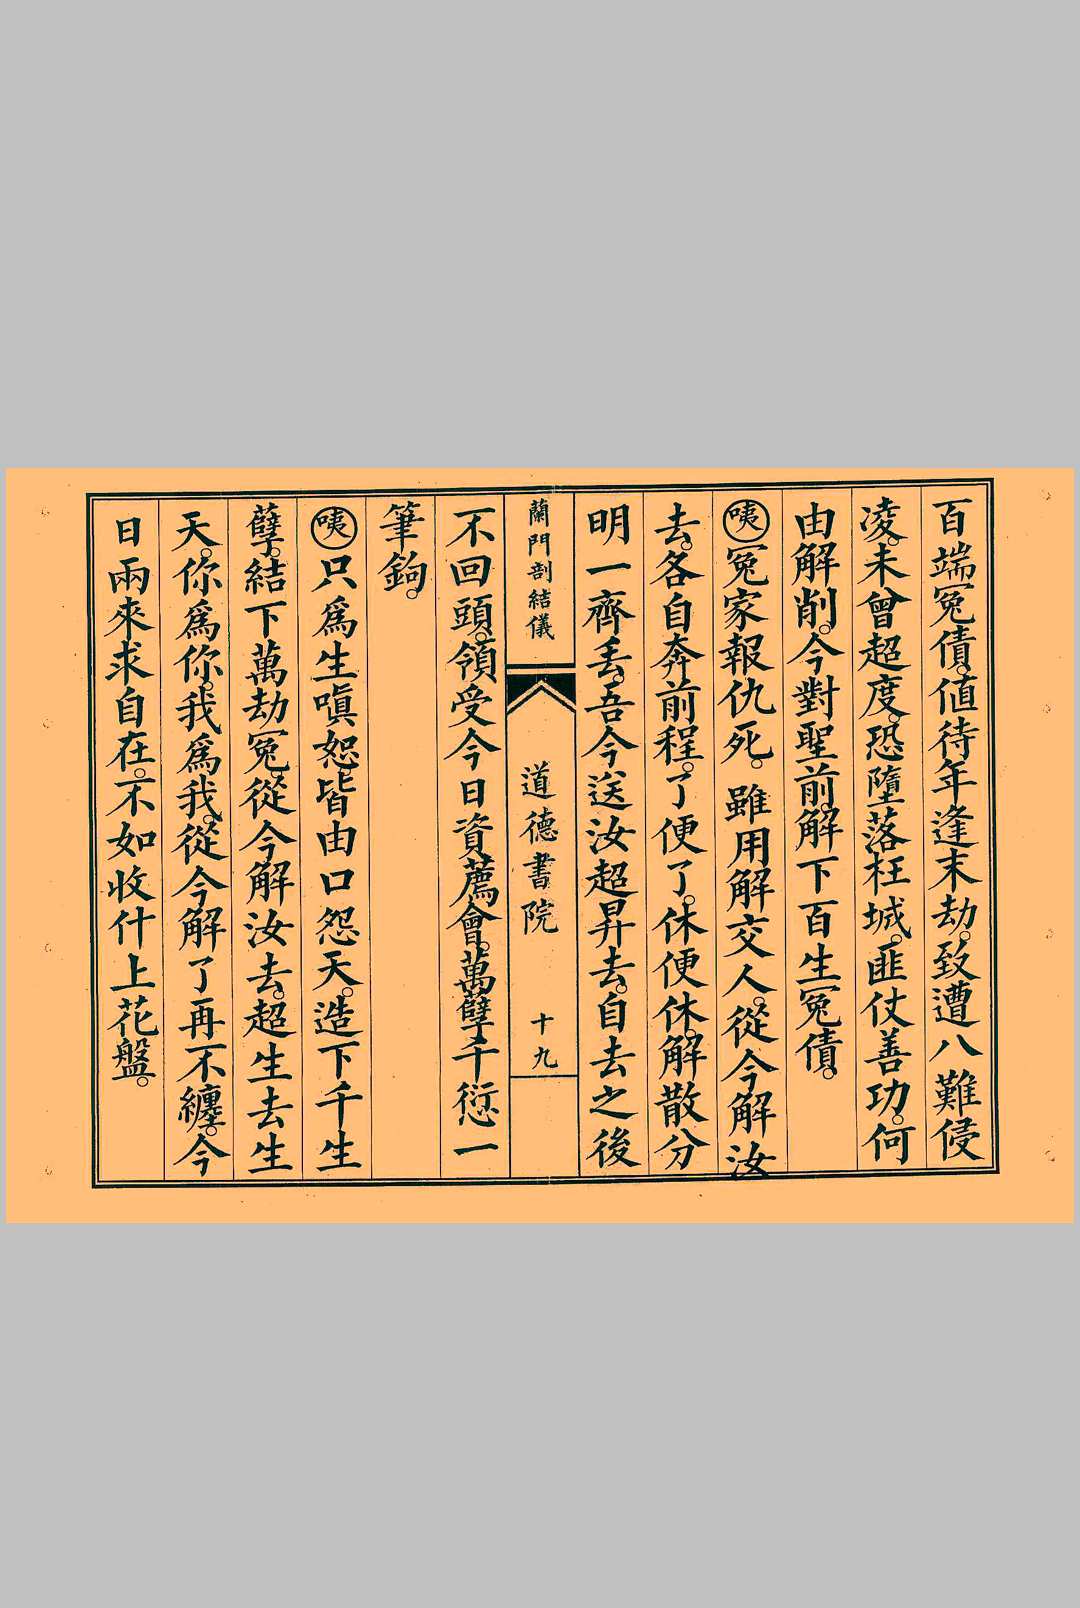 百端冤債。值待年逢末劫。致遭八難侵
凌。未曾超度。恐墮落枉城。匪仗善功。何
由解削。今對聖前。解下百生冤債。
咦冤家報仇死。雖用解交人。從今解汝
去。各自奔前程。了便了。休便休。解散分
明一齊丟。吾今送汝超昇去。自去之後
蘭門剖結儀
道德書院
十九
不回頭。領受今日資薦會。萬孽千愆一
筆鉤。
咦只爲生嗔恕皆由口怨天。造下千生
孽。結下萬劫冤。從今解汝去。超生去生
天。你爲你。我爲我。從今解了再不纏。今
日兩來求自在。不如收什上花盤。